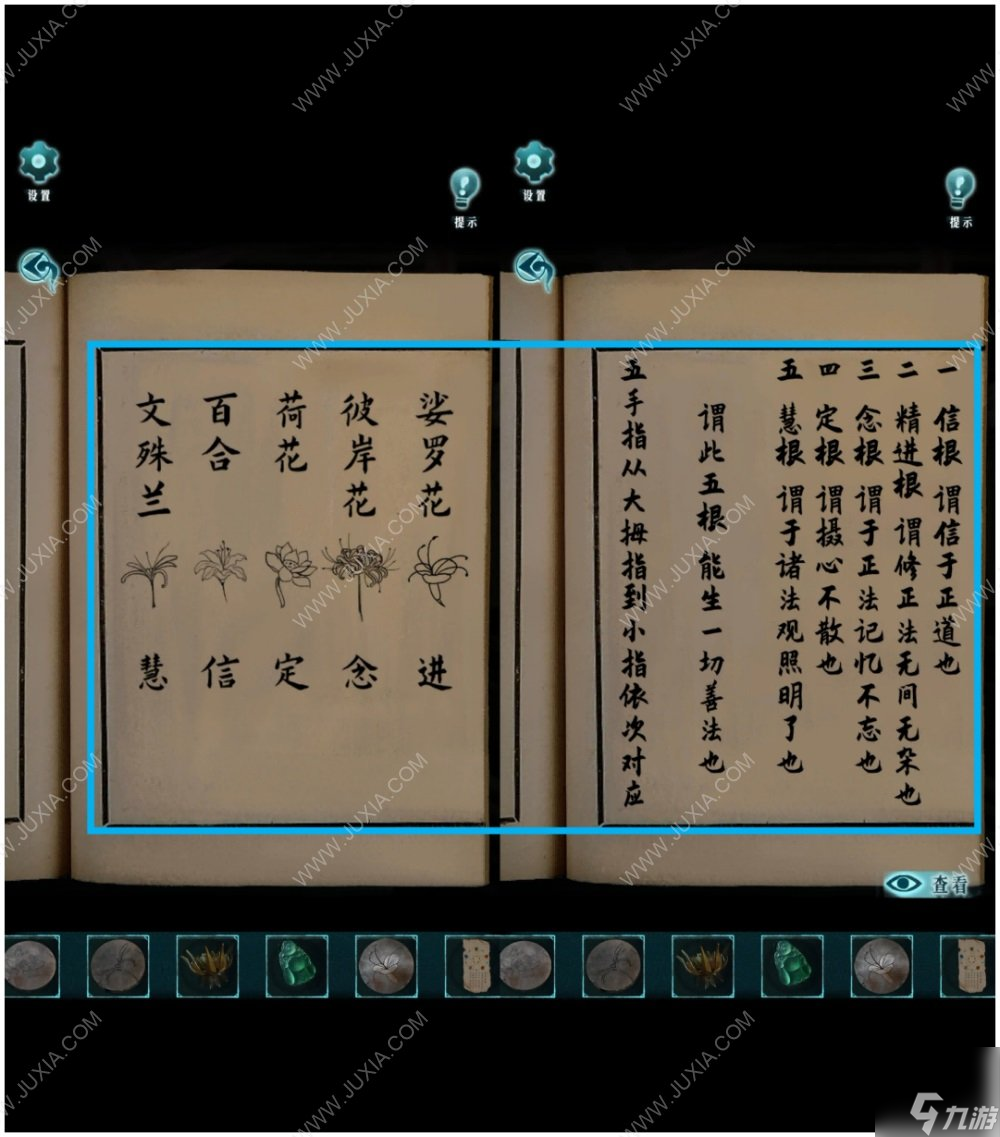 设置
提示
娑罗花 进
彼岸花 念
荷花 定
百合 信
文殊兰 慧
设置
提示
一 信根 谓信于正道也
二 精进根 谓修正法无间无杂也
三 念根 谓于正法记忆不忘也
四 定根 谓摄心不散也
五 慧根 谓于诸法观照明了也
谓此五根能生一切善法也
五手指从大拇指到小指依次对应
查看
WWW.JUXIA.COM
九游